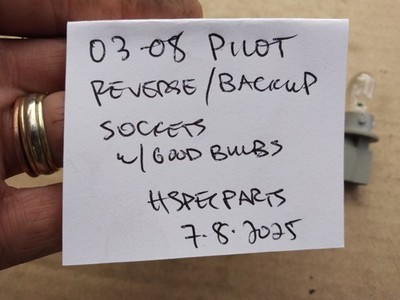 03-08 PILOT
REVERSE/BACKUP
SOCKETS
w/GOOD BULBS
HSPECPARTS
7.8.2025